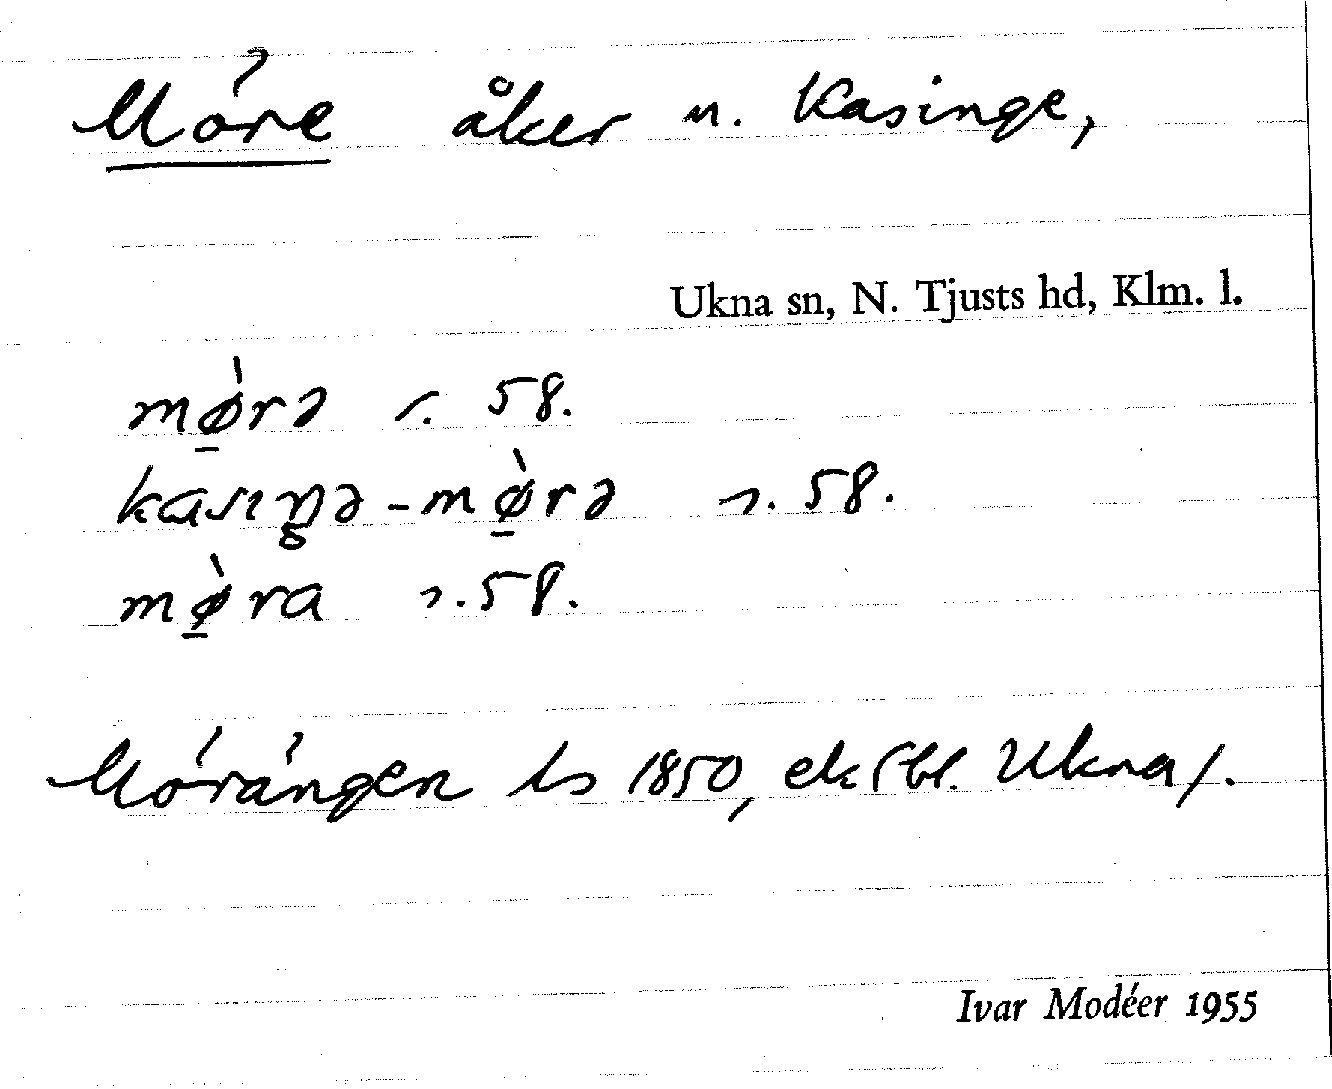 Möre åker n. Kasinge,
Ukna sn, N. Tjusts hd, Klm. l.
mø̱̀rə s. 58.
kasıŋə-mø̱̀rə s. 58.
mø̱̀ra s. 58.
Mörängen ls 1850, ek (bl. Ukna/.
Ivar Modéer 1955